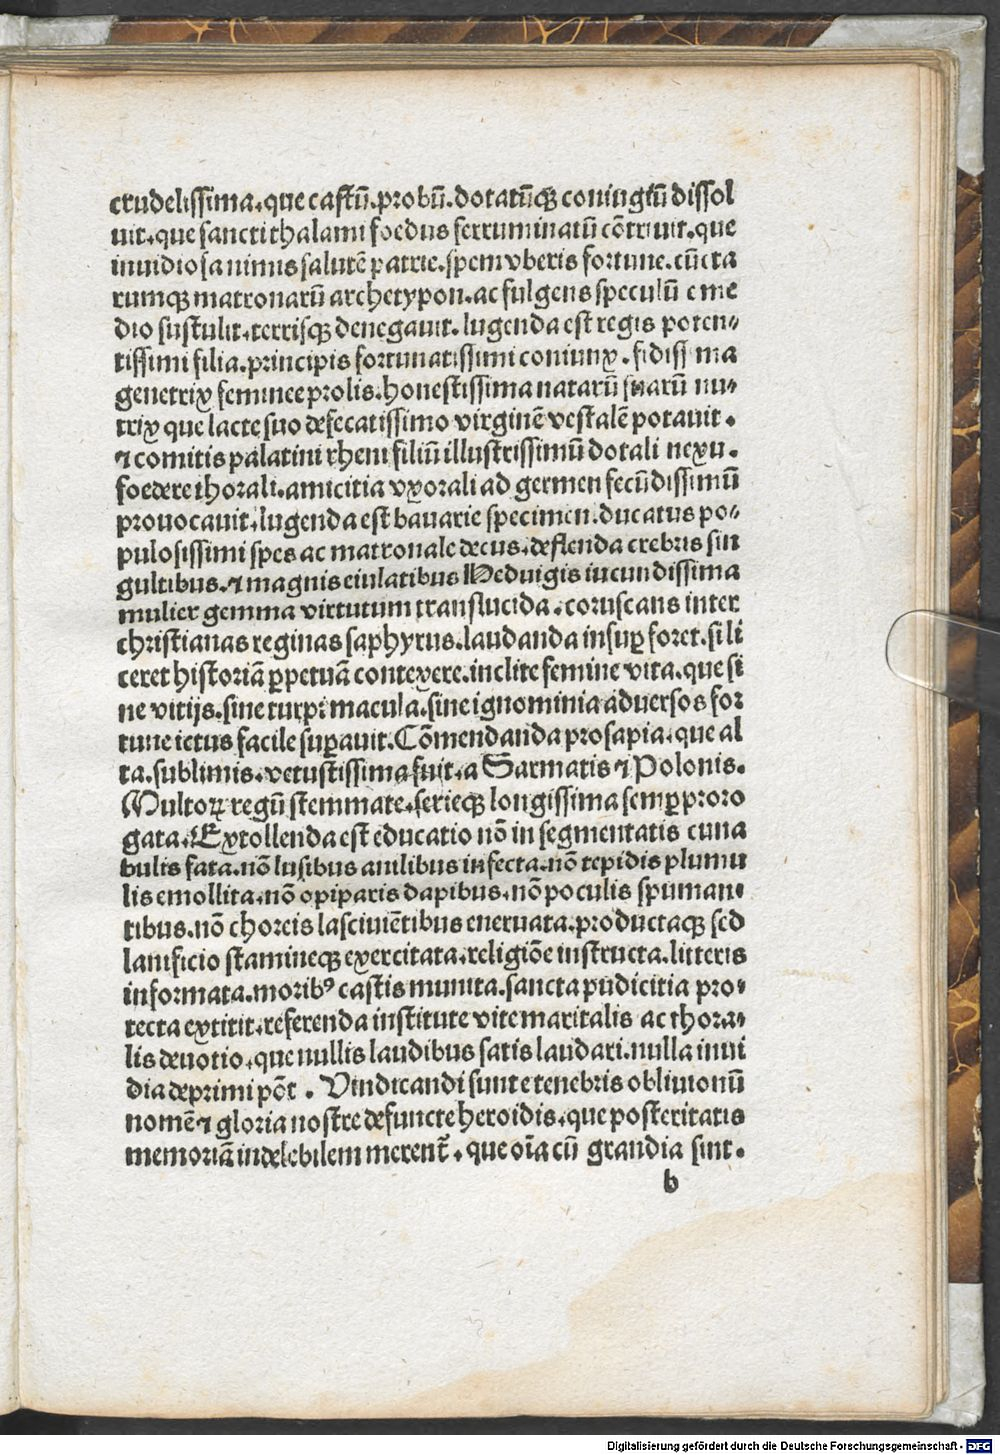 crudelissima.que castū.probū.dotatūqꝫ coniugiū dissol
uit.que sancti thalami foedus ferruminatū cōtriuit.que
inuidiosa nimis salutē patrie.spem vberis fortune.cūcta
rumqꝫ matronarū archetypon.ac fulgens speculū e me
dio sustulit.terrisqꝫ denegauit.lugenda est regis poten⸗
tissimi filia.principis fortunatissimi coniunx.fidissima
genetrix feminee prolis.honestissima natarū suarū nu⸗
trix que lacte suo defecatissimo virginē vestalē potauit.
⁊ comitis palatini rheni filiū illustrissimū dotali nexu.
foedere thorali.amicitia vxorali ad germen fecūdissimū
prouocauit.lugenda est bauarie specimen.ducatus po⸗
pulosissimi spes ac matronale decus.deflenda crebris sin
gultibus.⁊ magnis eiulatibus Heduigis iucundissima
mulier gemma virtutum translucida.coruscans inter
christianas reginas saphyrus.laudanda insuꝑ foret.si li
ceret historiā ꝑpetuā contexere.inclite femine vita.que si
ne vitijs.sine turpi macula.sine ignominia aduersos for
tune ictus facile suꝑauit.Cōmendanda prosapia.que al
ta.sublimis.vetustissima fuit.a Sarmatis ⁊ Polonis.
Multoꝝ regū stemmate.serieqꝫ longissima semꝑ proro
gata.Extollenda est educatio nō in segmentatis cuna
bulis fata.nō lusibus anilibus infecta.nō tepidis plumu
lis emollita.nō opiparis dapibus.nō poculis spuman⸗
tibus.nō choreis lasciuiētibus eneruata.productaqꝫ sed
lanificio stamineqꝫ exercitata.religiōe instructa.litteris
informata.moribꝰ castis munita.sancta pudicitia pro⸗
tecta extitit.referenda institute vite maritalis ac thora⸗
lis deuotio.que nullis laudibus satis laudari.nulla inui
dia deprimi pōt. Vindicandi sunt e tenebris obliuionū
nomē ⁊ gloria nostre defuncte heroidis.que posteritatis
memoriā indelebilem merent̃.que oīa cū grandia sint.
b
Digitalisierung gefördert durch die Deutsche Forschungsgemeinschaft - DFG